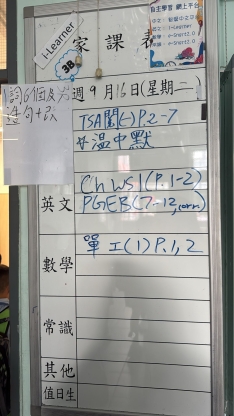 i-Learner
家課表
自主學習 網上平台
3B
詞6個及
造句+改
週 9月16日(星期二)
TSA閱(-)P.2-7
☆溫中默
英文
Ch WS1(P.1-2)
PGEB(7-12,corr)
數學
單工(1)P.1,2
常識
其他
值日生